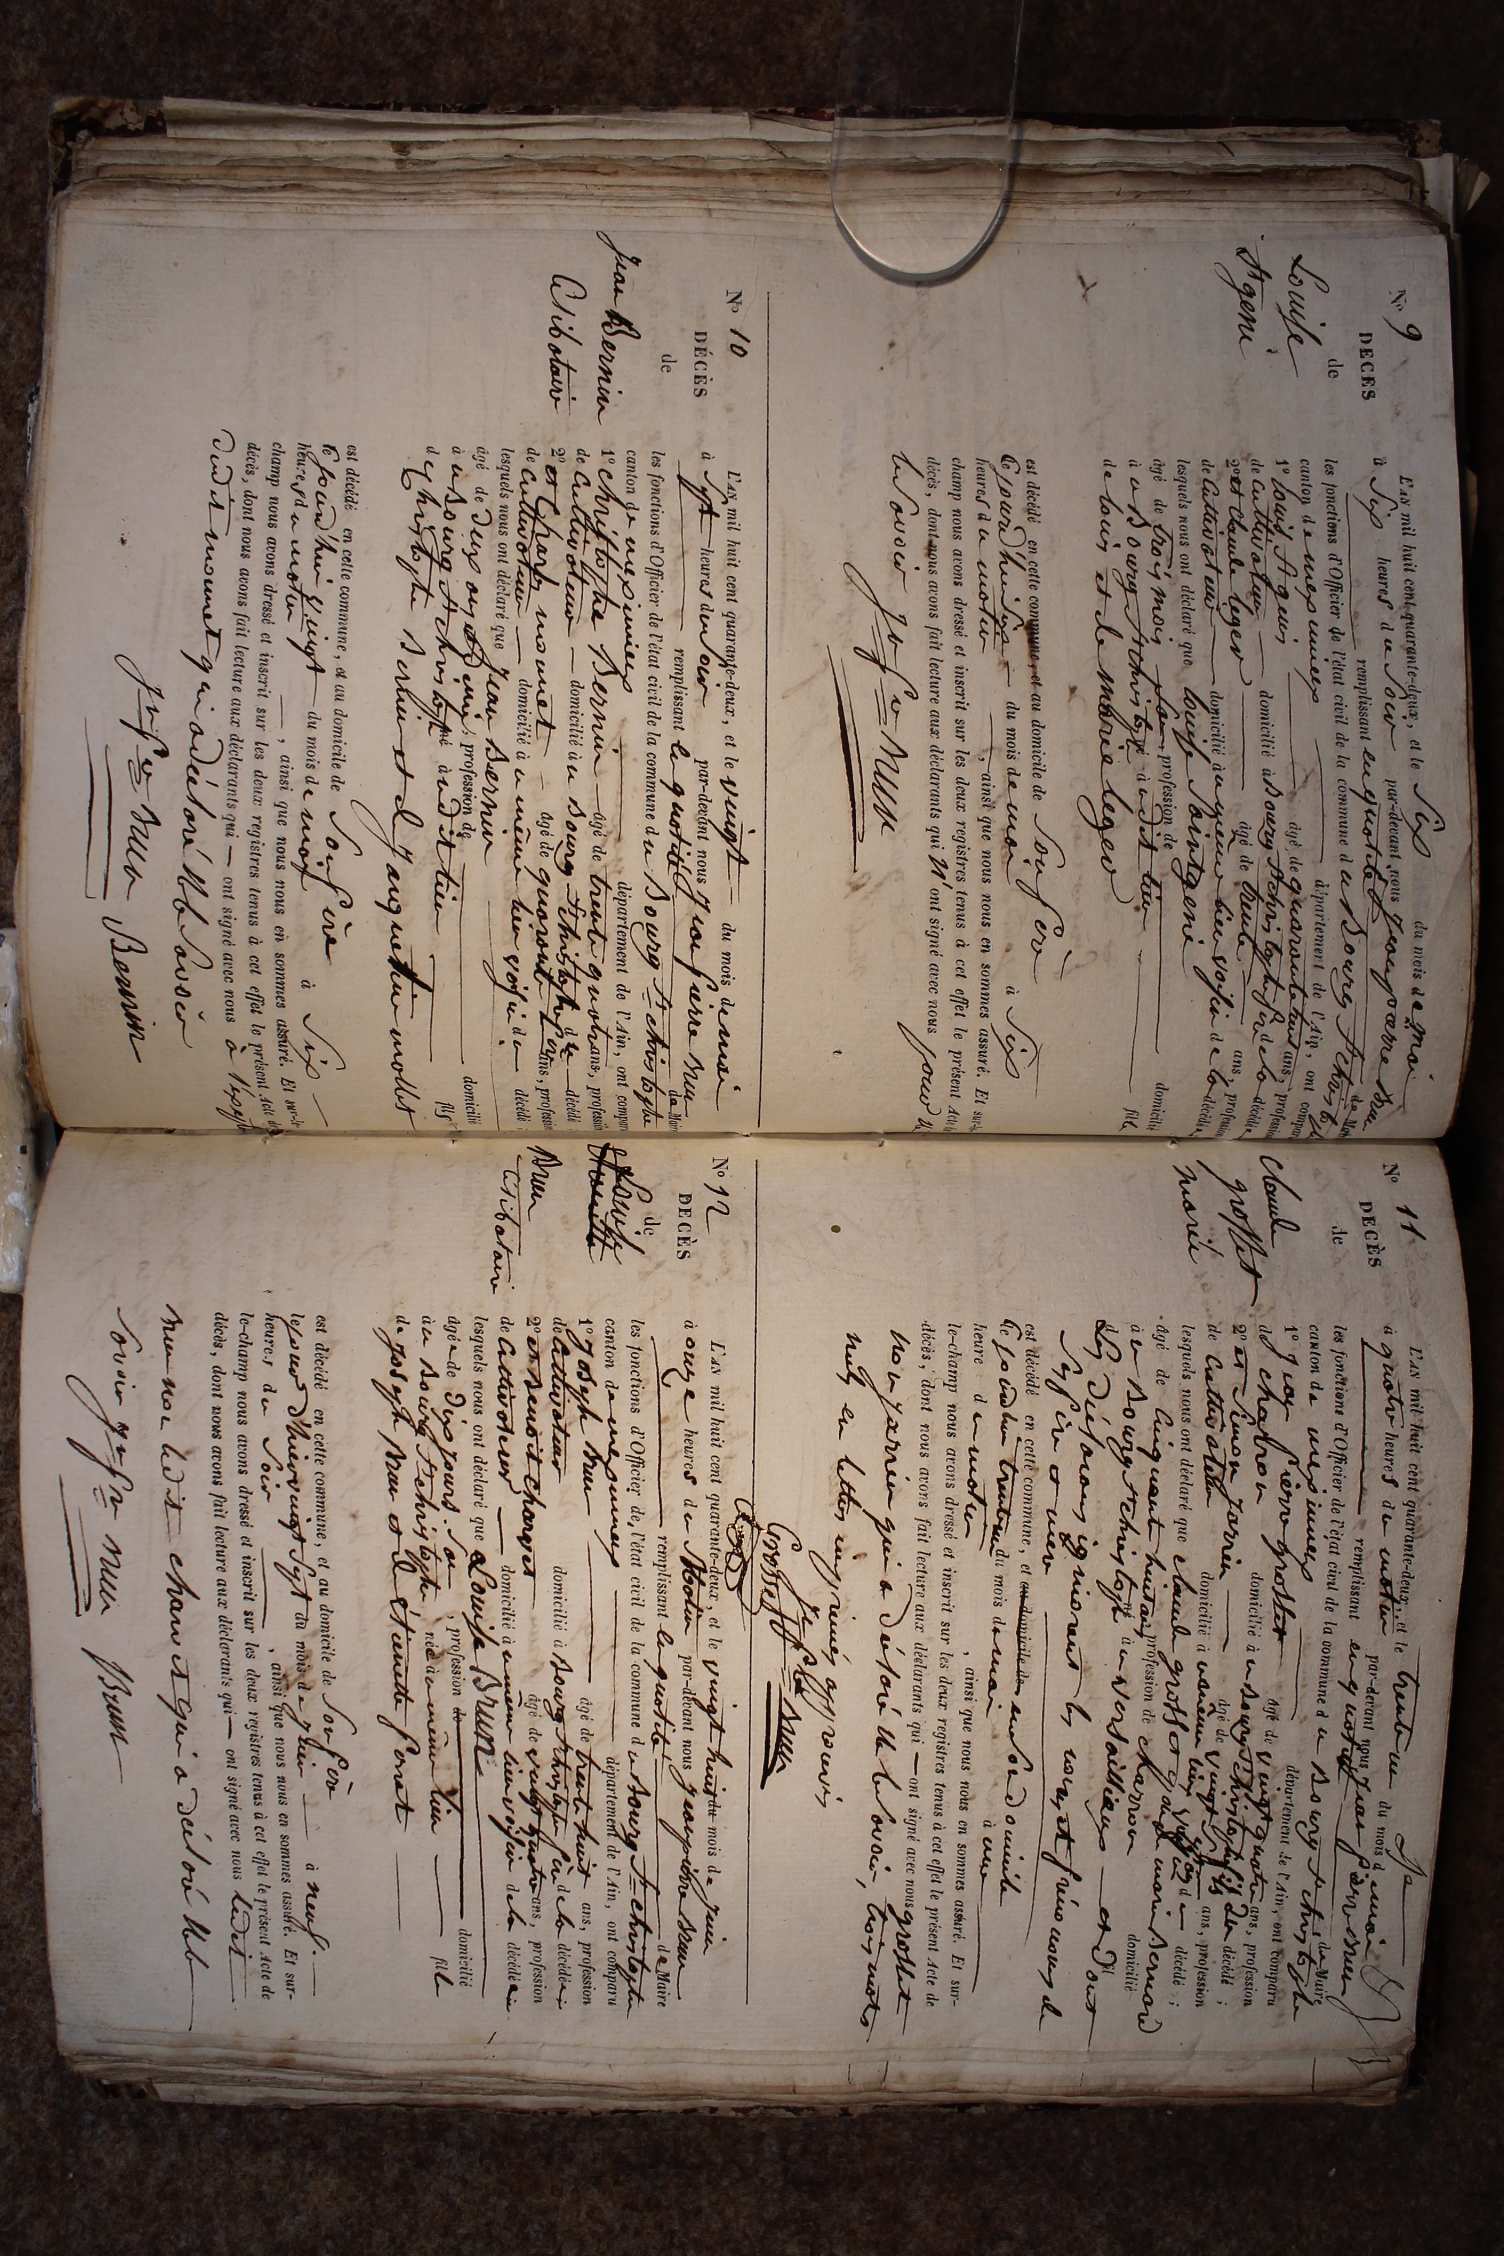 N° 9
DÉCÈS
de
Louise
St geni
L'AN mil huit cent quarante-deux, et le Six du mois de mai
à Six heures du Soir par-devant nous jean pierre brun
remplissant en qualité de Maire
les fonctions d'Officier de l'état civil de la commune du Bourg St christophe
canton de meximieux département de l'Ain, ont comparu
1° louis
de cultivateur domicilié à Bourg St christophe de la décédée
2° et claude leger âgé de ans, profession
de cultivateur domicilié à voisin de la décédée
lesquels nous ont déclaré que louise Saint geni
âgé de trois mois profession de domicilié
à u Bourg St christophe né à u dit lieu fille
de louis et de marie leger
est décédé en cette commune, et au domicile de Son père à Six
ce jourd'hui du mois de mai
heures du matin, ainsi que nous nous en sommes assuré. Et sur-le-
champ nous avons dressé et inscrit sur les deux registres tenus à cet effet le présent Acte
décès, dont nous avons fait lecture aux déclarants qui n'ont signé avec nous pour
le Savoir jn pre brun
N° 10
DÉCÈS
de
Jean Bernin
Célibataire
L'AN mil huit cent quarante-deux, et le vingt du mois de mai
à Sept heures du Soir par-devant nous jean pierre brun
remplissant la qualité de Maire
les fonctions d'Officier de l'état civil de la commune du Bourg St christophe
canton de meximieux département de l'Ain, ont comparu
1° christophe Bernin âgé de trente quatre ans, profession
de Cultivateur domicilié à u Bourg St christophe décédé
2° et monnet âgé de quarante ans, profession
de Cultivateur domicilié à u même lieu voisin du décédé
lesquels nous ont déclaré que jean Bernin
âgé de deux ans et demi profession de domicilié
à u Bourg St christophe né à u dit lieu fils
de christophe Bernin et de jauquetin mollet
est décédé en cette commune, et au domicile de Son père à Six
ce jourd'hui vingt du mois de mai
heures du matin, ainsi que nous nous en sommes assuré. Et sur-le-
champ nous avons dressé et inscrit sur les deux registres tenus à cet effet le présent Acte de
décès, dont nous avons fait lecture aux déclarants qui ont signé avec nous à
dudit monnet qui a déclaré ne le Savoir
jn pre brun Bernin
N° 11
DÉCÈS
de
Claude
grosset
marié
L'AN mil huit cent quarante-deux, et le trente un du mois de mai
à quatre heures du matin par-devant nous jean pierre brun
remplissant en qualité de Maire
les fonctions d'Officier de l'état civil de la commune du Bourg St christophe
canton de meximieux département de l'Ain, ont comparu
1° jean pierre grosset âgé de vingt quatre ans, profession
de charron domicilié à u Bourg St christophe fils du décédé;
2° et Simon jarrin âgé de vingt ans, profession
de Cultivateur domicilié à u même lieu du décédé;
lesquels nous ont déclaré que claude grosset de marie Bernard
âgé de Cinquante huit ans, profession de charron domicilié
à u Bourg St christophe né à Versailleux et dont
les déclarans ignorent les noms et prénoms de
Ses père et mère
est décédé en cette commune, et au domicile de en Son domicile
ce jourd'hui trente un du mois de mai à une
heure du matin, ainsi que nous nous en sommes assuré. Et sur-
le-champ nous avons dressé et inscrit sur les deux registres tenus à cet effet le présent Acte de
décès, dont nous avons fait lecture aux déclarants qui ont signé avec nous grosset
non jarrin qui a déclaré ne le Savoir, trois mots
nuls en lettres imprimés approuvés
jn pre brun
Grosset
N° 12
DÉCÈS
de
Louise
Brun
Célibataire
L'AN mil huit cent quarante-deux et le vingt huit du mois de juin
à onze heures du Matin par-devant nous jean pierre brun
remplissant la qualité de Maire
les fonctions d'Officier de l'état civil de la commune du Bourg St christophe
canton de meximieux département de l'Ain, ont comparu
1° joseph brun âgé de trente huit ans, profession
de Cultivateur domicilié à Bourg St christophe père de la décédée
2° et Benoit charvet âgé de vingt quatre ans, profession
de Cultivateur domicilié à u même lieu voisin de la décédée
lesquels nous ont déclaré que Louise Brun
âgée de dix jours. Son, profession de domicilié
à u Bourg St christophe née à u même lieu fille
de joseph brun et d'étiennette forest
est décédé en cette commune, et au domicile de Son père à neuf
le jour d'hier vingt Sept du mois de juin
heures du Soir, ainsi que nous nous en sommes assuré. Et sur-
le-champ nous avons dressé et inscrit sur les deux registres tenus à cet effet le présent Acte de
décès, dont nous avons fait lecture aux déclarants qui ont signé avec nous ledit
brun non ledit charvet qui a déclaré ne le
Savoir jn pre brun Brun